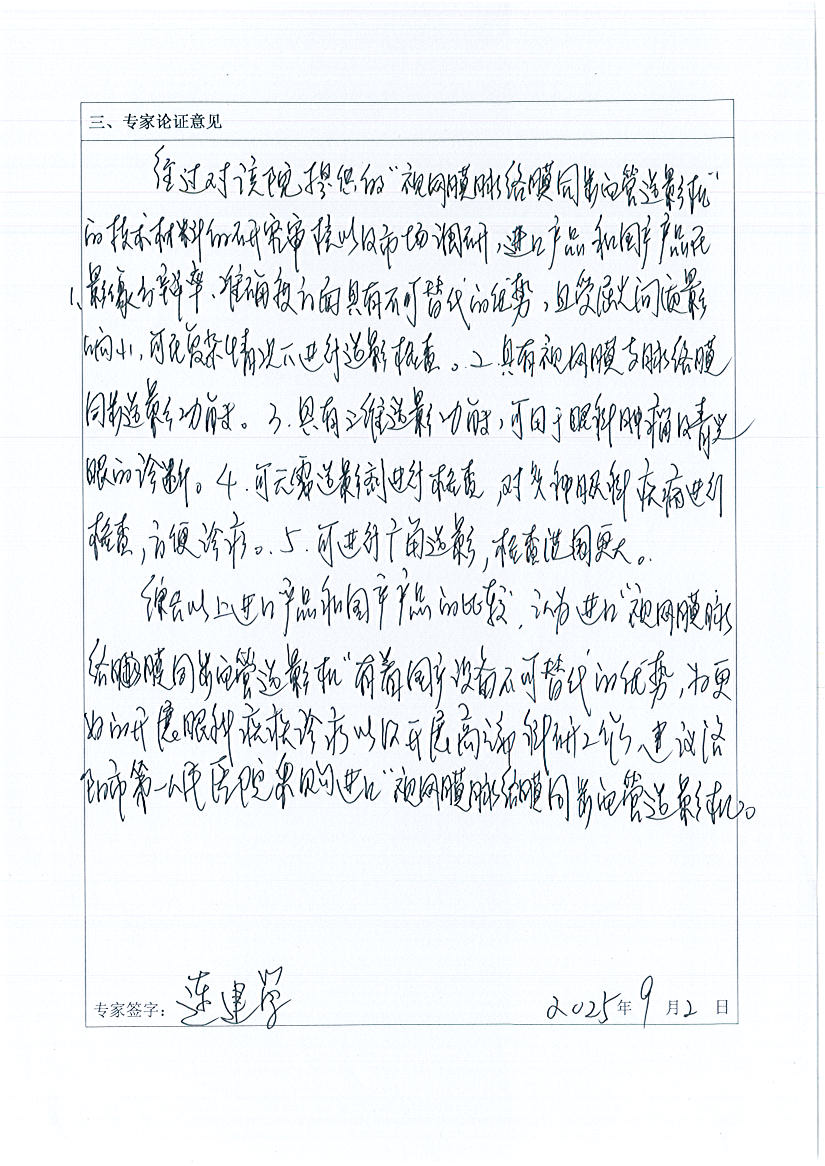 三、专家论证意见
经过对该院提供的“视网膜脉络膜同步血管造影机”
的技术材料的研究审核以及市场调研，进口产品和国产产品在
1、影像分辨率、准确度方面具有不可替代的优势，且受屈光间质影
响小，可在复杂情况下进行造影检查。2.具有视网膜与脉络膜
同步造影功能。3.具有三维造影功能，可用于眼科肿瘤及青光
眼的诊断。4.可无需造影剂进行检查，对多种眼科疾病进行
检查，方便诊疗。5.可进行广角造影，检查范围更大。
综合以上进口产品和国产产品的比较，认为进口“视网膜脉
络膜同步血管造影机”有着国产设备不可替代的优势，为更
好的开展眼科疾病诊疗以及开展高端科研工作，建议洛
阳市第一人民医院采购进口“视网膜脉络膜同步血管造影机。
专家签字：连建学 2025年9月2日